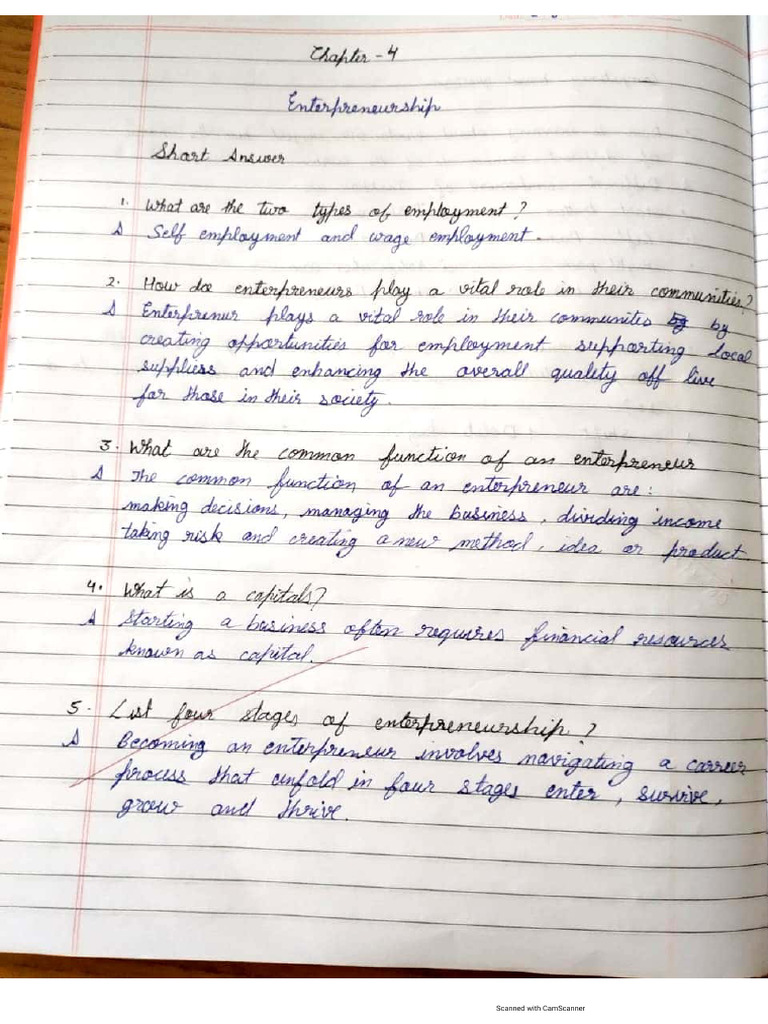 Chapter - 4
Enterpreneurship
Short Answer
1. What are the two types of employment?
A Self employment and wage employment.
2. How do enterpreneurs play a vital role in their communities?
A Enterprenur plays a vital role in their communites by
creating opportunities for employment supporting local
suppliess and enhancing the overall quality off live
for those in their society.
3. What are the common function of an enterpreneur
A The common function of an enterpreneur are:
making decisions, managing the business, dividing income
taking risk and creating a new method, idea or product
4. What is a capitals?
A Starting a business often requires financial resources
known as capital.
5. List four stages of enterpreneurship?
A Becoming an enterpreneur involves navigating a carreer
process that unfold in four stages enter, survive,
grow and thrive.
Scanned with CamScanner